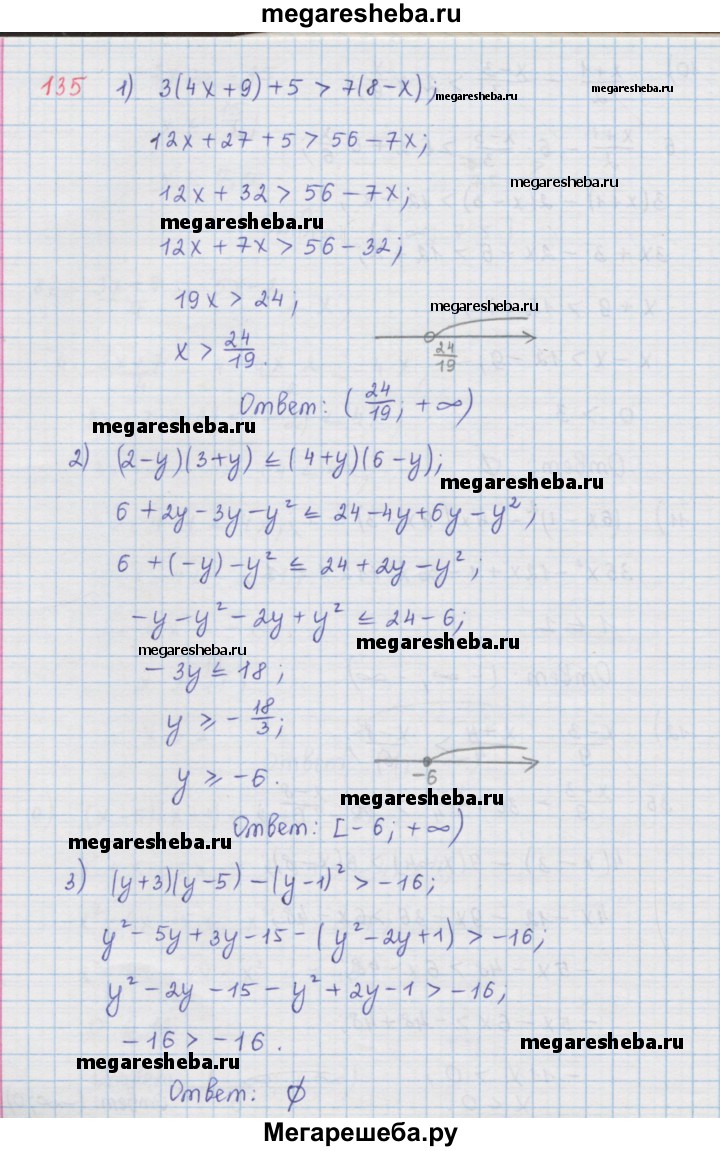 megaresheba.ru
135 1) 3(4x+9)+5 > 7(8-x);
megaresheba.ru
12x+27+5 > 56-7x;
megaresheba.ru
12x+32 > 56-7x;
megaresheba.ru
12x+7x > 56-32;
19x > 24;
megaresheba.ru
x > 24/19.
24/19
Ответ: (24/19; +∞)
megaresheba.ru
2) (2-y)(3+y) ≤ (4+y)(6-y);
megaresheba.ru
6+2y-3y-y² ≤ 24-4y+6y-y²;
6+(-y)-y² ≤ 24+2y-y²;
-y-y²-2y+y² ≤ 24-6;
megaresheba.ru
megaresheba.ru
-3y ≤ 18;
y ≥ -18/3;
y ≥ -6.
-6
megaresheba.ru
Ответ: [-6; +∞)
megaresheba.ru
3) (y+3)(y-5)-(y-1)² > -16;
y²-5y+3y-15-(y²-2y+1) > -16;
y²-2y-15-y²+2y-1 > -16;
-16 > -16.
megaresheba.ru
megaresheba.ru
Ответ: ∅
Мегарешеба.ру